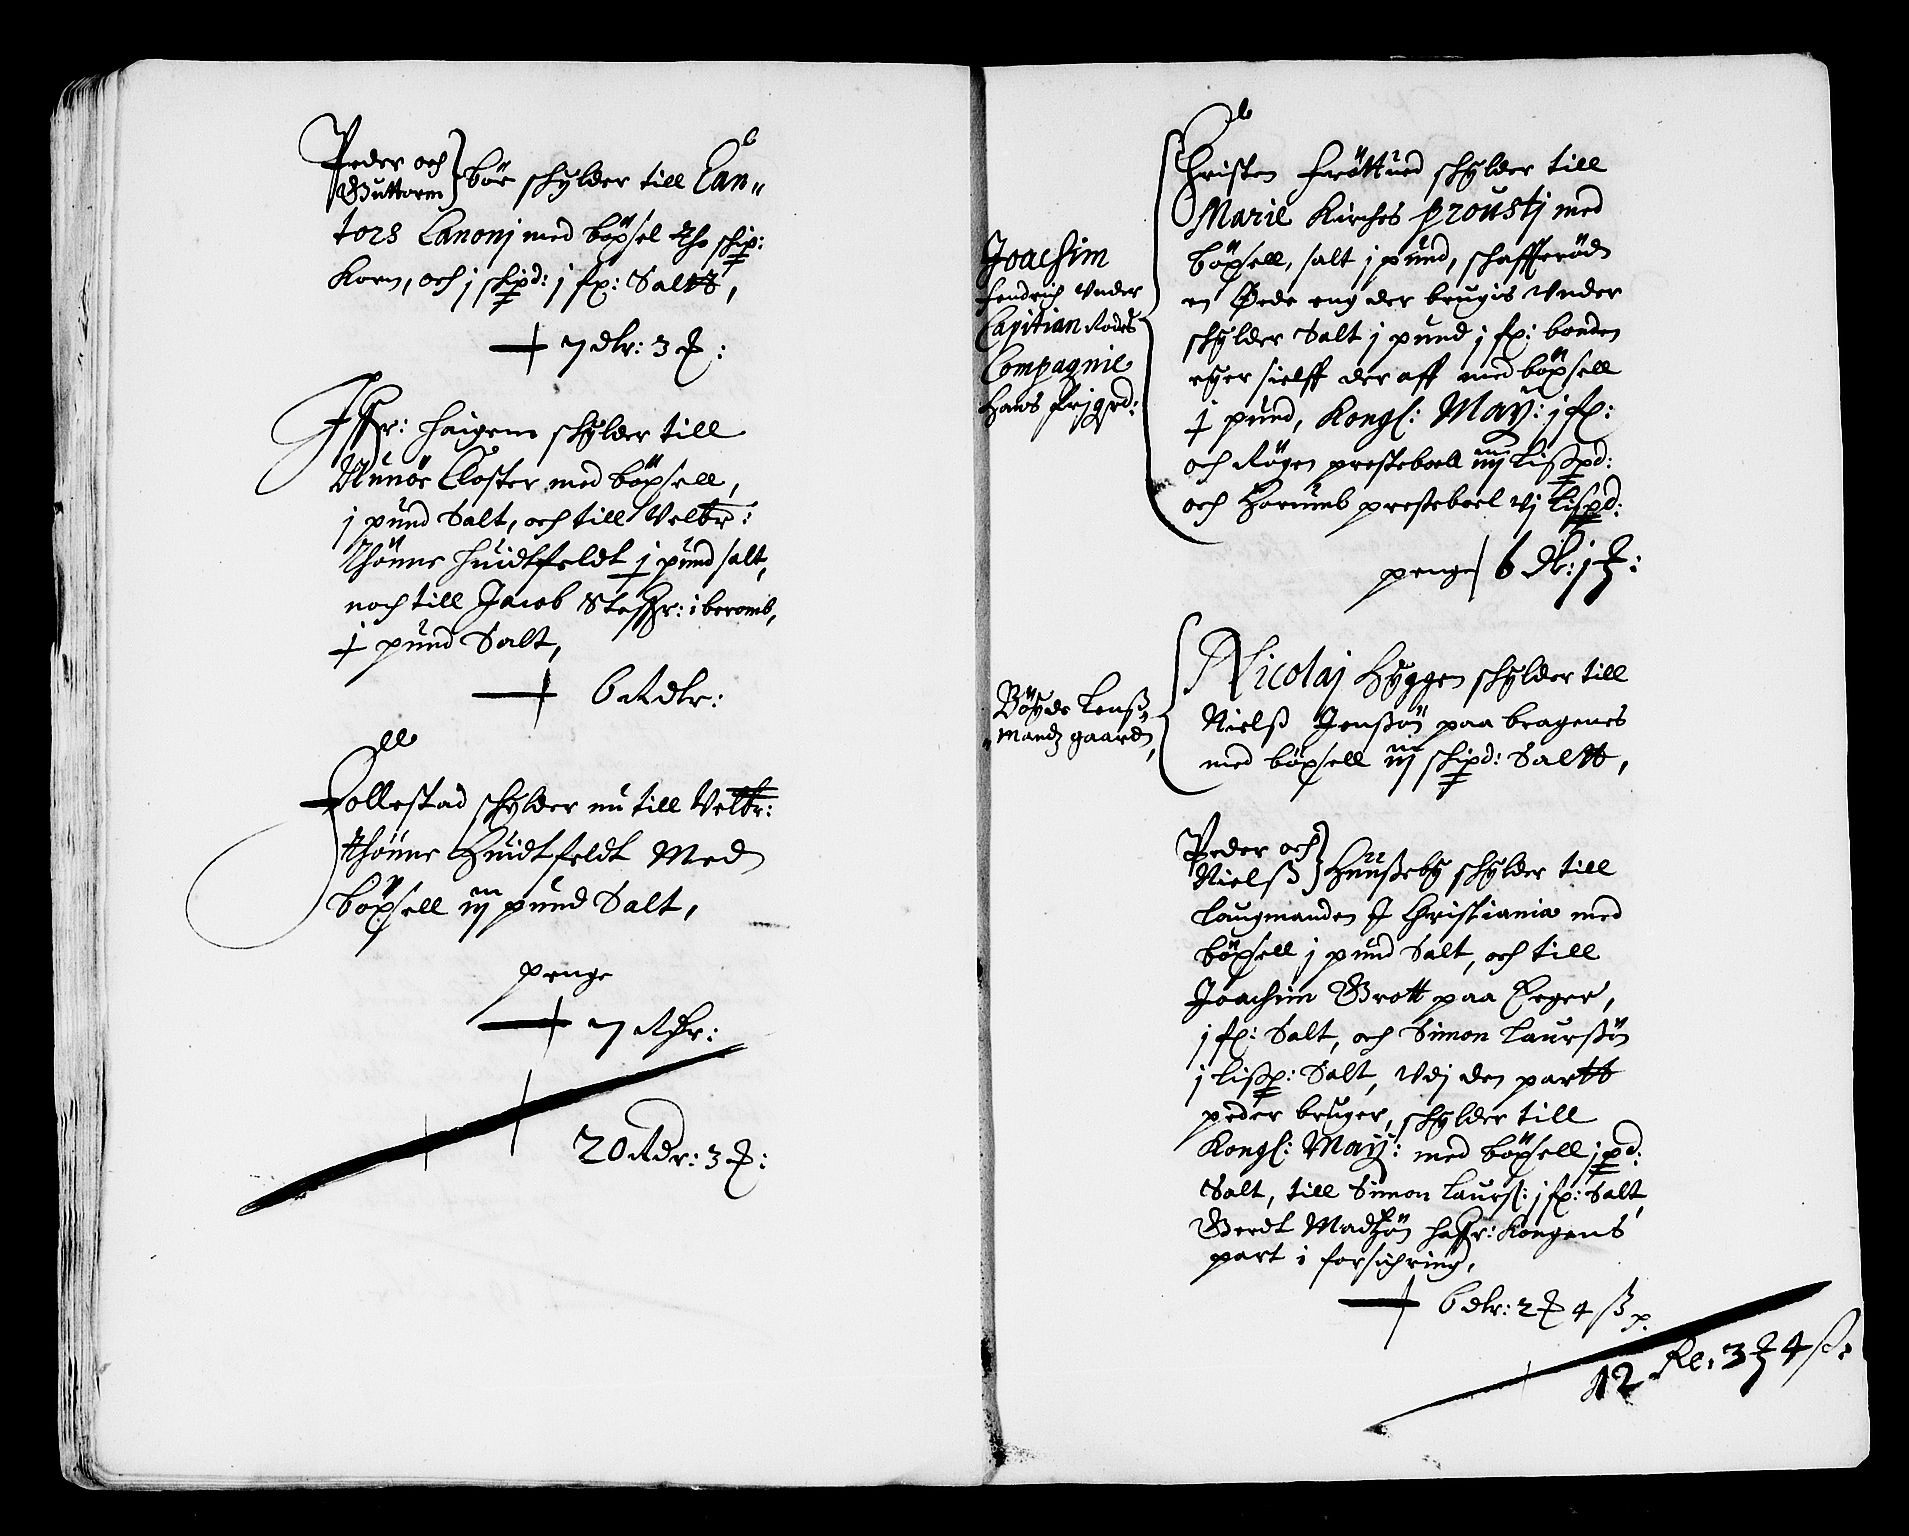 Peder och
Guttorm } bør schylder till Can„
tors Canonj med böxsel tho schip:
Korn, och j schipd: j fx: Saltt,
7 dlr: 3 ƶ:
Iffr: haigem schylder till
Closter med böxsell,
j pund Salt, och till Velbr:
Thönne Huidtfeldt j pund salt,
noch till Jacob Steffr: i beromb,
j pund Salt,
6 Rdlr:
Follestad schylder nu till Velbr:
thönne Huidtfeldt Med
böxsell iij pund Salt,
penge
7 Rdr:
20 Rdr: 3 ƶ:
Joachim
fendrich Vnder
Capitian Rodes
Compagnie
Hans frj grd:
Christen fröttued schylder till
Marie Kirches prousti med
böxsell, salt j pund, schafferöde
en Øde eng der brugis Vnder
schylder Salt j pund j fx: bonden
eyer sielff der aff med böxsell
j pund, Kongl: May: j fx:
och Rögen presteboell iiij Lißpd:
och Horumb presteboel vj Lispd:
penge 6 dr: j ƶ:
Böyde Lenß„
„mandz gaard,
Nicolaj Hyggen schylder till
Nielß Jenßön paa bragenes
med böxsell iij schipd: Saltt,
Peder och
Nielß } Hunßeby schylder till
Laugmanden J Christiania med
böxsell j pund Salt, och till
Joachim Grott paa Eeger,
j fx: Salt, och Simon Laurßön
j Lißp: Salt, Vdj den partt
peder bruger, schylder till
Kongl: Mayj: med böxsell j pd:
Salt, till Simon Laurs: j fx: Salt,
Gerdt Madzön haffr: Kongens
part i forsichring,
6 dlr: 2 ƶ 4 ß p.
12 Rl: 3 ƶ 4 ß: